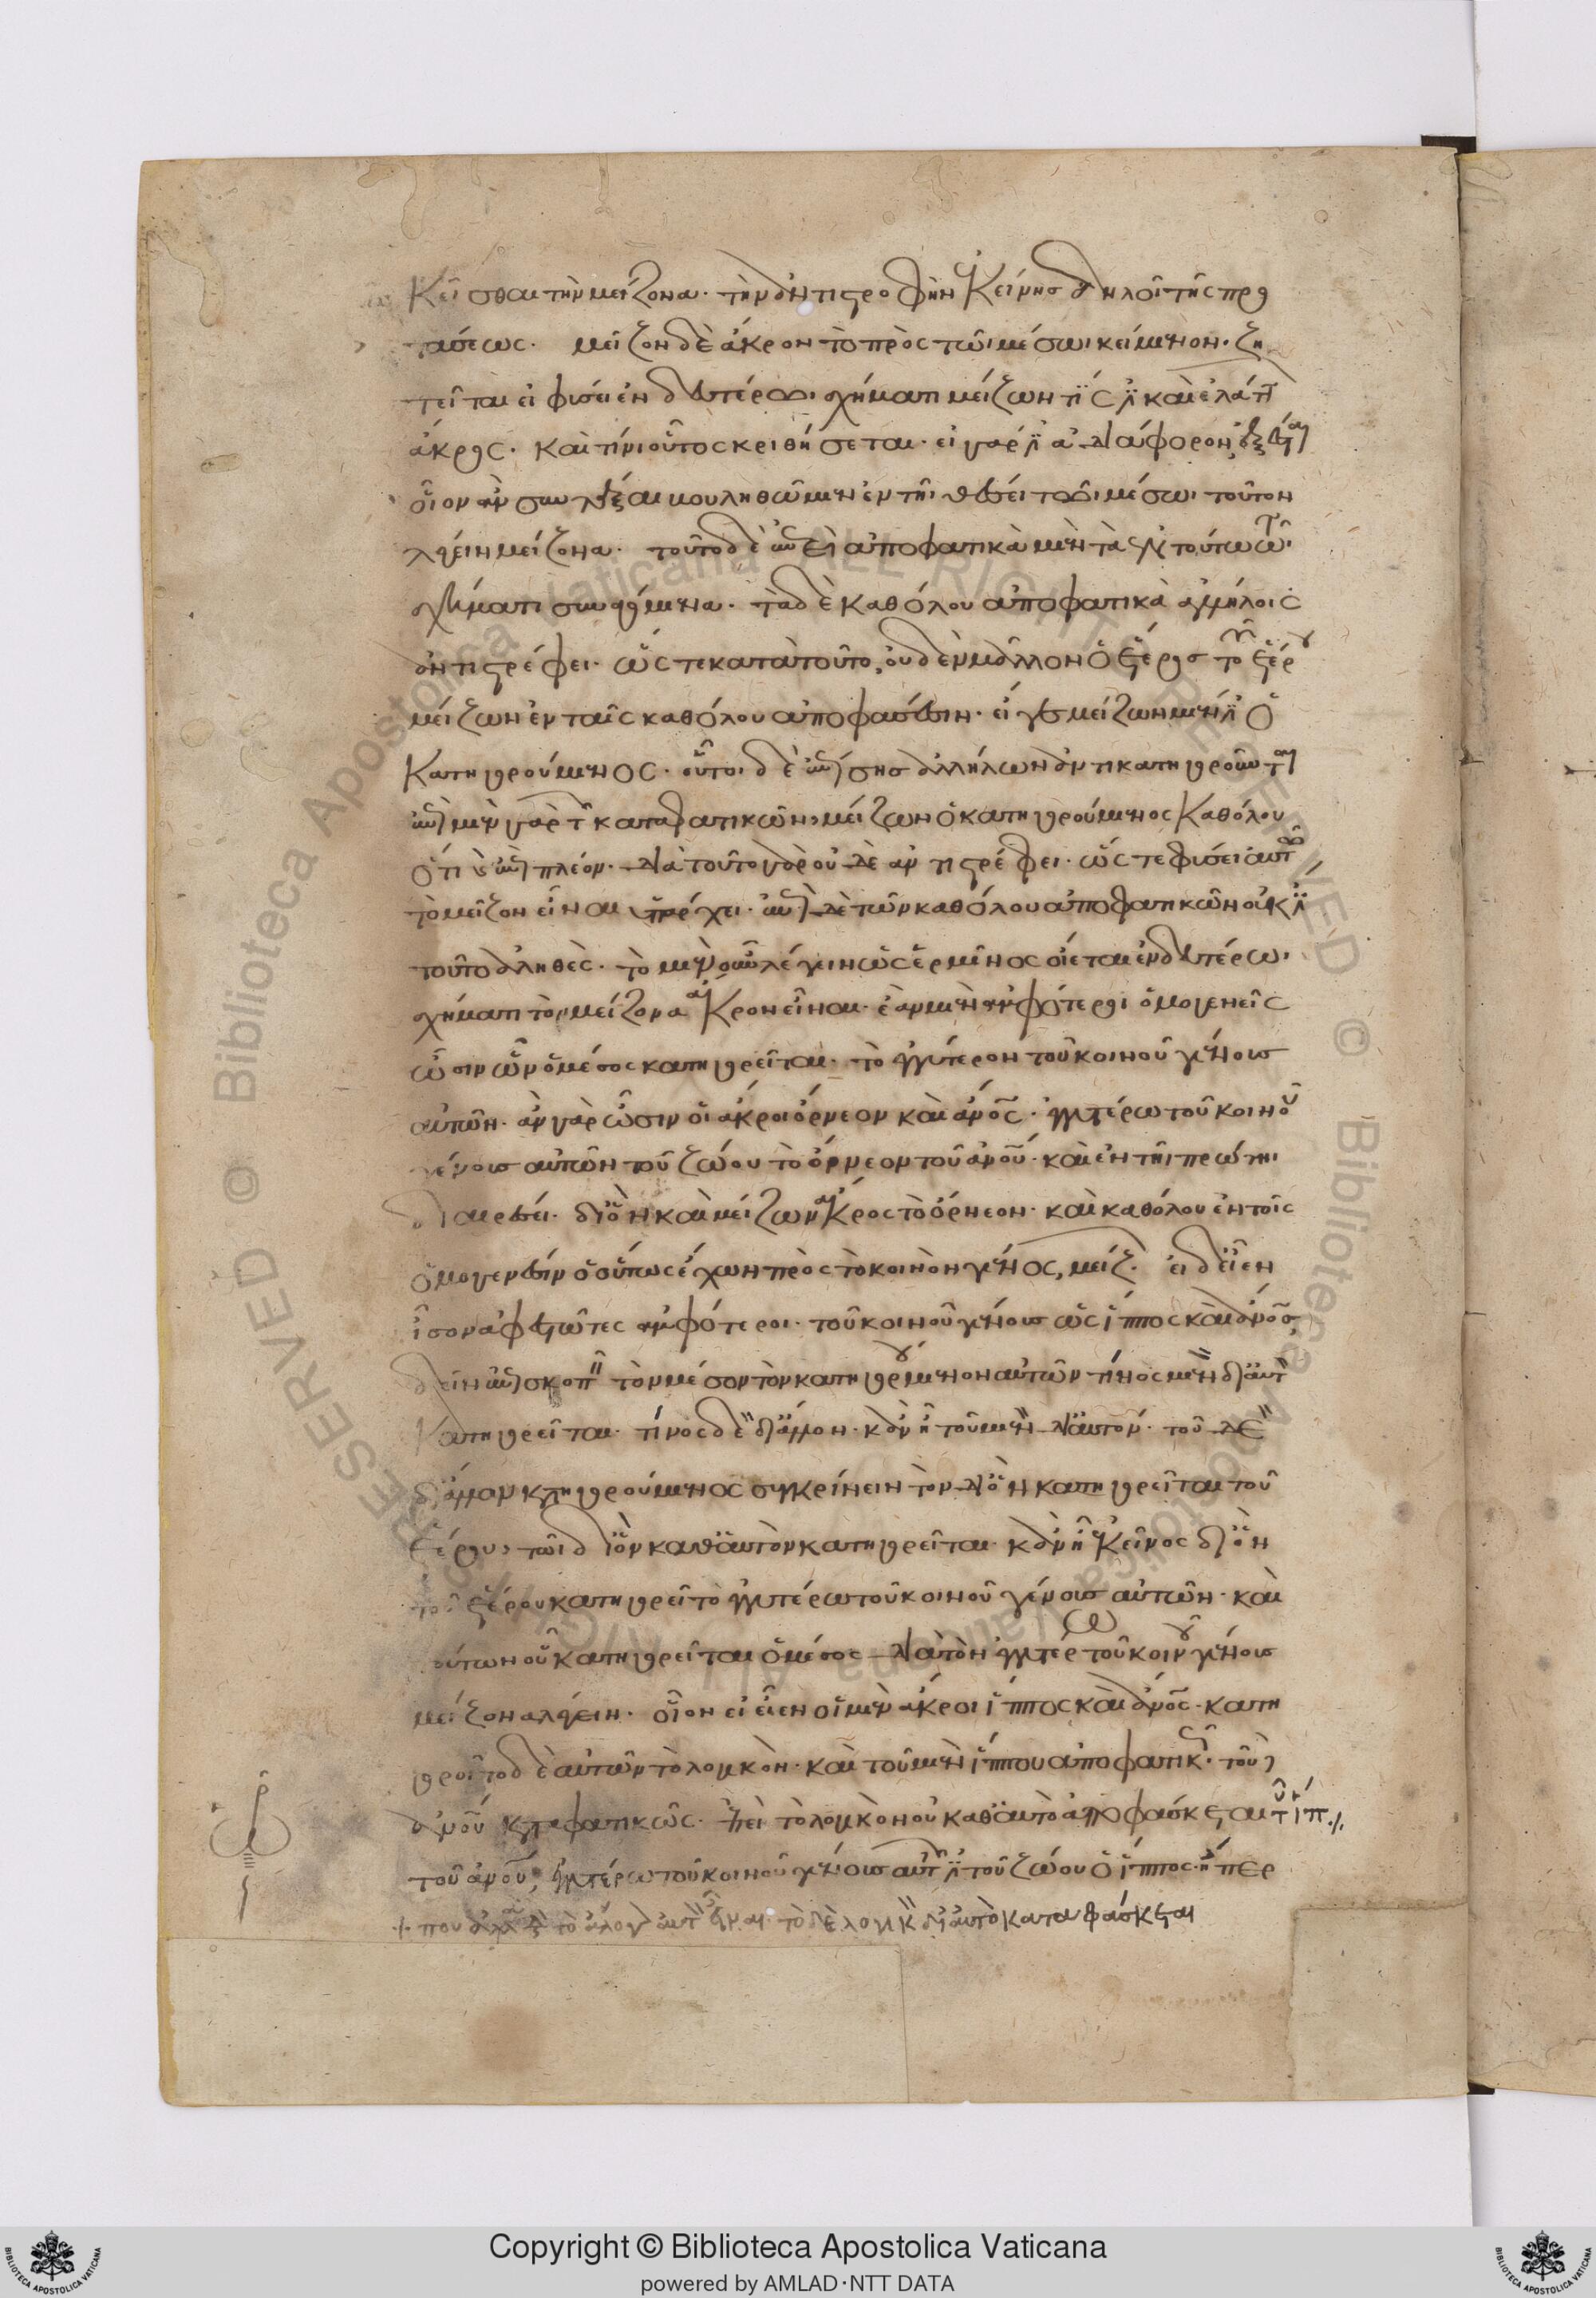 Κεῖσθαι τὴν μείζονα· τὴν ἀντιστροφὴν ἐκείνης δηλοῖ τῆς προ
τάσεως. μεῖζον δὲ ἄκρον τὸ πρὸς τῶι μέσωι κείμενον. ζη
τεῖται εἰ φύσει ἐν δευτέρωι σχήματι μείζων τίς ἐστι καὶ ἐλάττων
ἄκρος. καὶ τίνι οὗτος κριθήσεται. εἰ γάρ ἐστι ἀδιάφορον
οἷον ἂν συλλογ βουληθῶμεν ἐν τῆι θέσει τῶι μέσωι τοῦτον
λέγειν μείζονα. τοῦτο δὲ ἐπεὶ ἀποφατικὰ μὲν τὰ ἐν τούτωι τῶι
σχήματι συναγόμενα. τὰ δὲ καθόλου ἀποφατικὰ ἀλλήλοις
ἀντιστρέφει. ὥστε κατὰ τοῦτο, οὐδὲν μᾶλλον ὁ ἕτερος τοῦ ἑτέρου
μείζων ἐν ταῖς καθόλου ἀποφάσεσιν. εἴ γε μείζων μέν ἐστι ὁ
Κατηγορούμενος. οὗτοι δὲ ἐπίσης ἀλλήλων ἀντικατηγοροῦνται
ἐπὶ μὲν γὰρ τῶν καταφατικῶν, μείζων ὁ κατηγορούμενος καθόλου
ὅτι καὶ ἐπὶ πλέον. διὰ τοῦτο γὰρ οὐδὲ ἀντιστρέφει. ὥστε φύσει αὐτῶ
τὸ μεῖζον εἶναι ὑπάρχει. ἐπὶ δὲ τῶν καθόλου ἀποφατικῶν οὐκέτι
τοῦτο ἀληθές. τὸ μὲν οὖν λέγειν ὡς ἑρμῖνος οἴεται ἐν δευτέρωι
σχήματι τὸν μείζονα ἄκρον εἶναι. ἐὰν μὲν ἀμφότεροι ὁμογενεῖς
ὦσιν ὧν ὁ μέσος κατηγορεῖται. τὸ ἐγγύτερον τοῦ κοινοῦ γένους
αὐτῶν. ἂν γὰρ ὦσιν οἱ ἄκροι ὄρνεον καὶ ἄνος. ἐγγυτέρω τοῦ κοινοῦ
γένους αὐτῶν τοῦ ζώου τὸ ὄρνεον τοῦ ἀνου. καὶ ἐν τῆι πρώτηι
διαιρέσει. διὸ καὶ μείζων ἄκρος τὸ ὄρνεον. καὶ καθόλου ἐν τοῖς
ὁμογενέσιν ὁ οὕτως ἔχων πρὸς τὸ κοινὸν γένος, μείζ. εἰ δ' εἶεν
ἴσον ἀφεστῶτες ἀμφότεροι. τοῦ κοινοῦ γένους ὡς ἵππος καὶ ἄνος,
δεῖν ἐπισκοπεῖν τὸν μέσον τὸν κατηγορούμενον αὐτῶν τίνος μὲν δι' αὑτὸν
Κατηγορεῖται. τίνος δὲ δι' ἄλλον. κἂν ἦ τοῦ μὲν δι' αὑτόν. τοῦ δὲ
δι' ἄλλον κατηγορούμενος συγκρίνειν τὸν δι' ὃν κατηγορεῖται τοῦ
ἑτέρου, τῶι δι' ὃν καθ' αὑτὸν κατηγορεῖται. κἂν ἦ ἐκεῖνος δι' ὃν
τοῦ ἑτέρου κατηγορεῖτο ἐγγυτέρω τοῦ κοινοῦ γένους αὐτῶν. καὶ
τούτων οὗ κατηγορεῖται ὁ μέσος διὰ τὸν ἐγγυτέρω τοῦ κοινοῦ γένους
μείζονα λέγειν. οἷον εἰ εἶεν οἱ μὲν ἄκροι ἵππος καὶ ἄνος. κατη
γοροῖτο δὲ αὐτῶν τὸ λογικόν. καὶ τοῦ μὲν ἵππου ἀποφατικῶς. τοῦ δὲ
ἀνου καταφατικῶς. ἐπεὶ τὸ λογικὸν οὐ καθ' αὑτὸ ἀποφάσκεται τοῦ ἵπ
τοῦ ἀνου, ἐγγυτέρω τοῦ κοινοῦ γένους αὐτῶν ἐστι τοῦ ζώου ὁ ἵππος. ἤπερ
που ἀλλὰ τὸ ἄλογον αὐτὸν εἶναι. τὸ δὲ λογικὸν δι' αὑτὸ καταφάσκεται
Copyright © Biblioteca Apostolica Vaticana
powered by AMLAD·NTT DATA